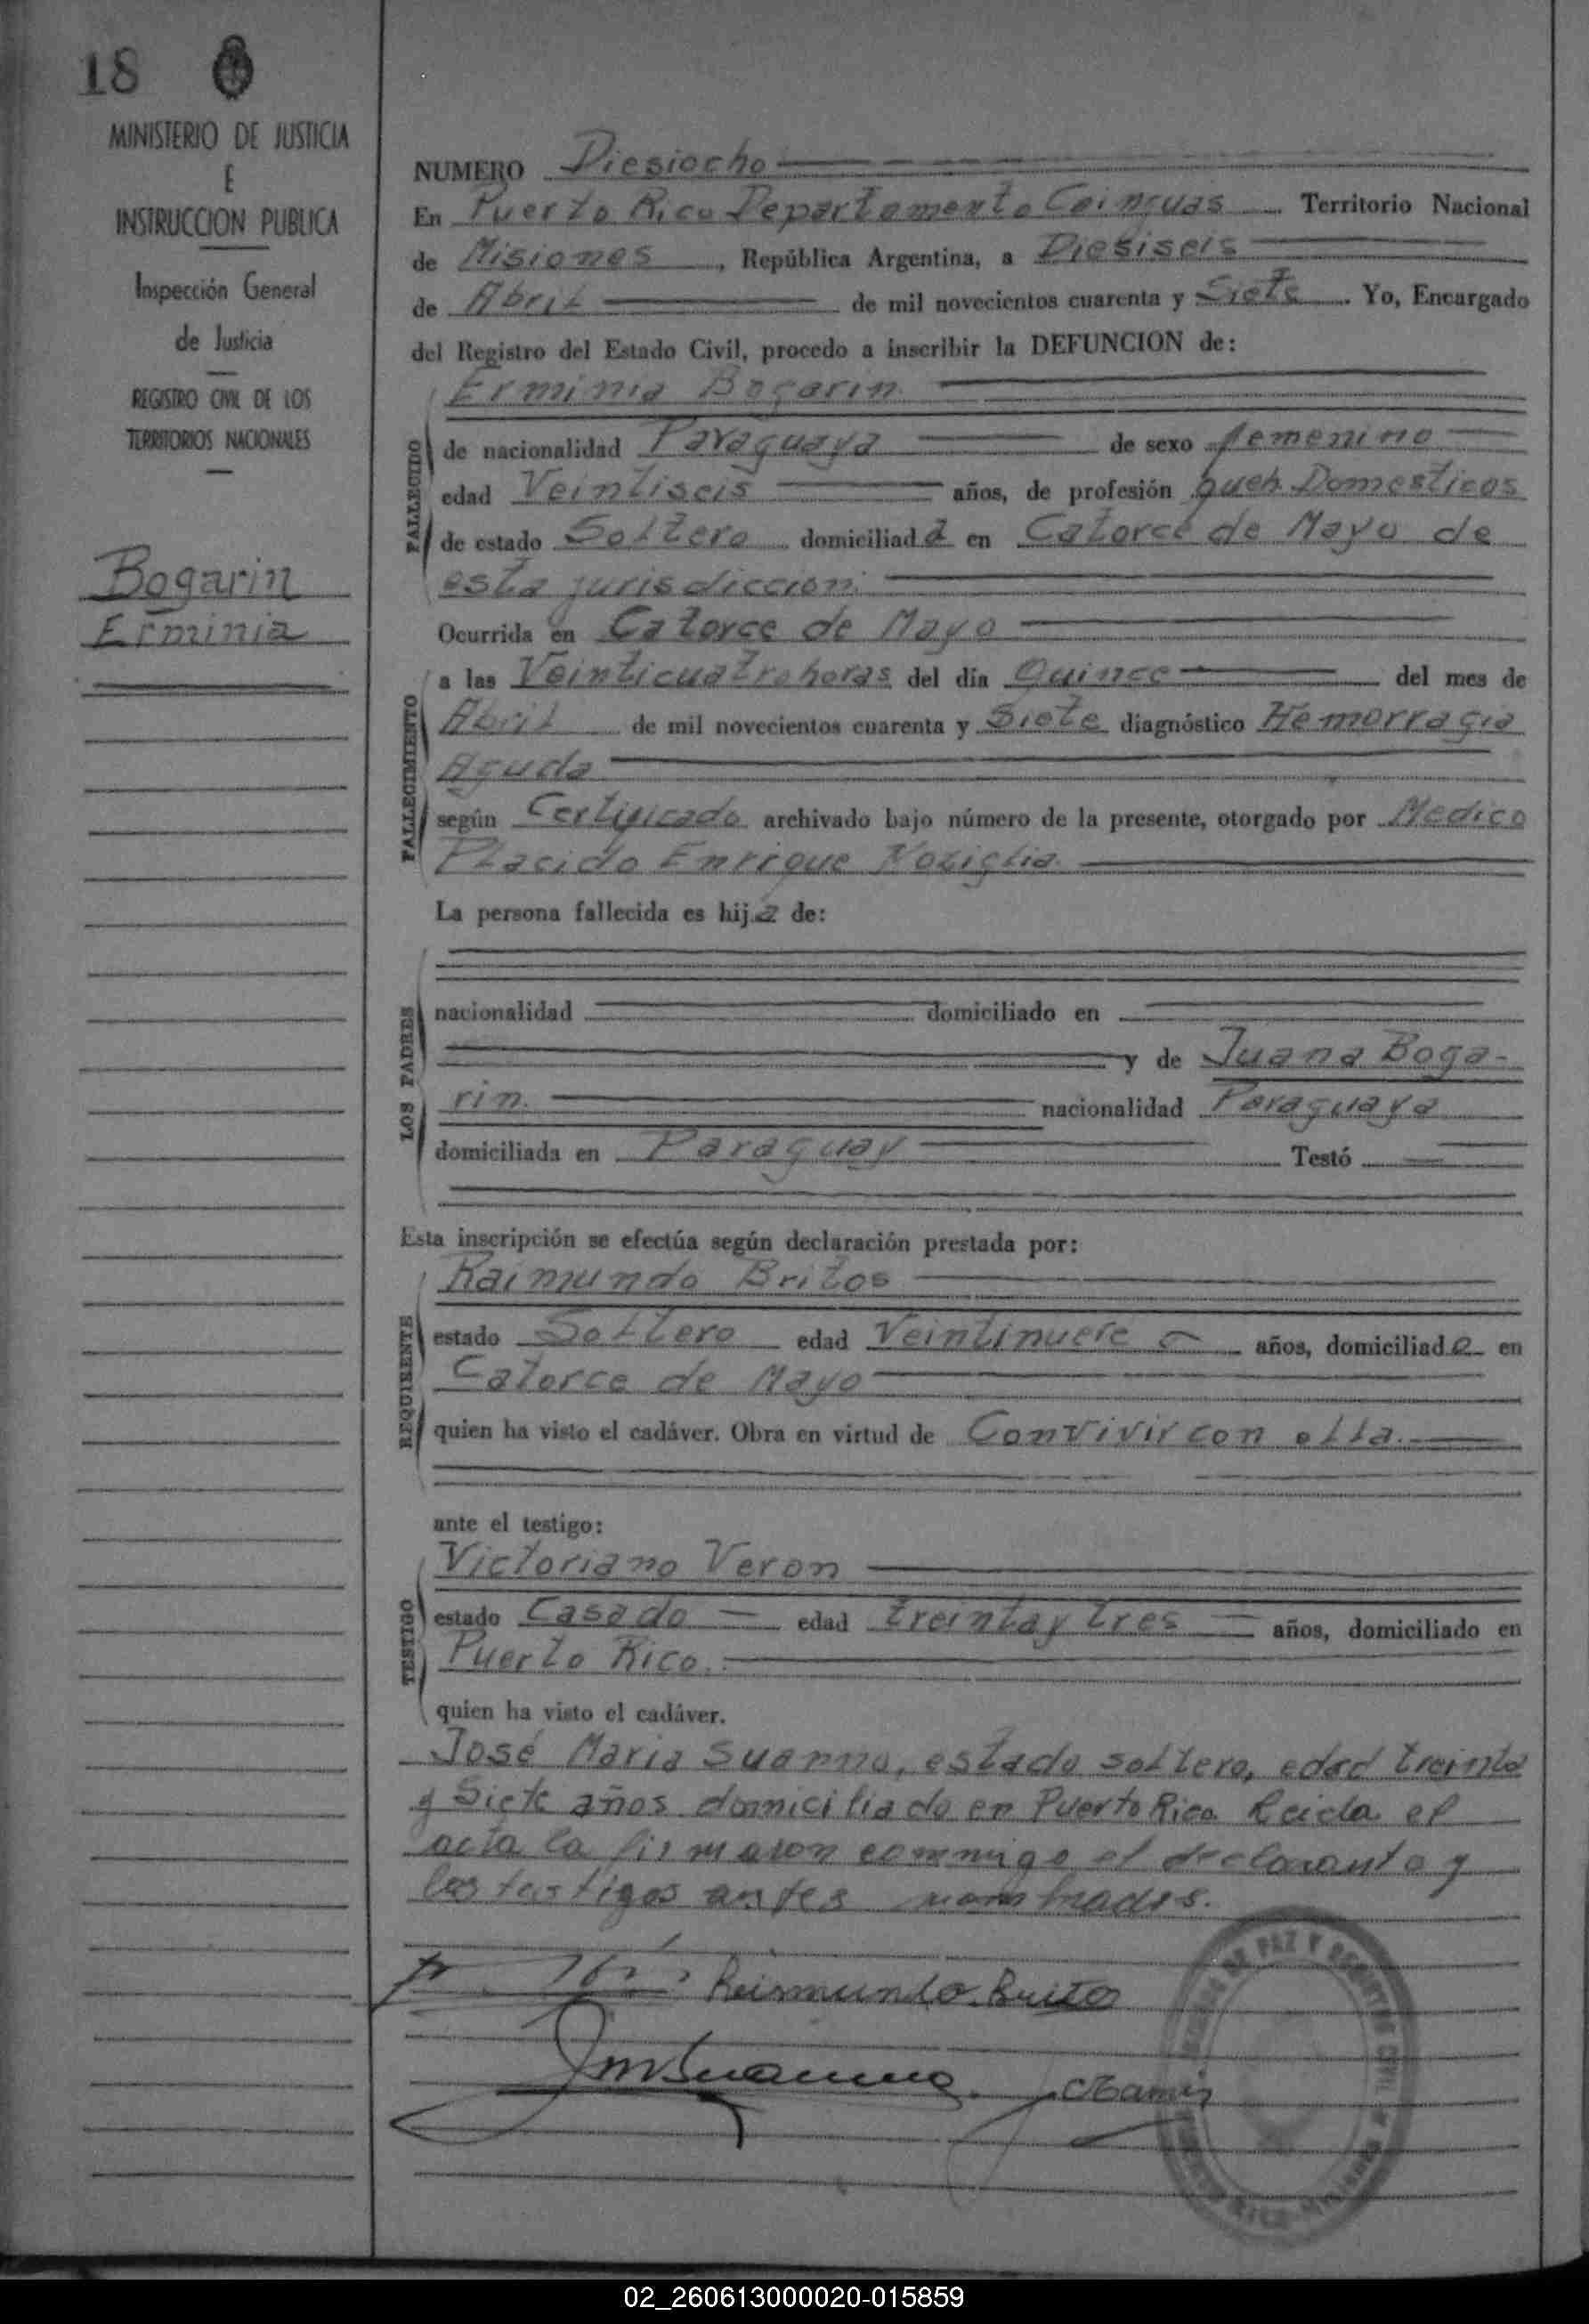 18
MINISTERIO DE JUSTICIA
E
INSTRUCCION PUBLICA
Inspección General
de Justicia
REGISTRO CIVIL DE LOS
TERRITORIOS NACIONALES
Bogarin
Erminia
NUMERO Diesiocho
En Puerto Rico Departamento Cainguas Territorio Nacional
de Misiones, República Argentina, a Diesiseis
de Abril de mil novecientos cuarenta y Siete. Yo, Encargado
del Registro del Estado Civil, procedo a inscribir la DEFUNCION de:
Erminia Bogarin
FALLECIDO
de nacionalidad Paraguaya de sexo femenino
edad Veintiseis años, de profesión queh. Domesticos
de estado Soltero domiciliada en Catorce de Mayo de
esta jurisdiccion.
Ocurrida en Catorce de Mayo
FALLECIMIENTO
a las Veinticuatro horas del día Quince del mes de
Abril de mil novecientos cuarenta y Siete diagnóstico Hemorragia
Aguda
según Certificado archivado bajo número de la presente, otorgado por Medico
Placido Enrique Nosiglia.
La persona fallecida es hija de:
LOS PADRES
nacionalidad domiciliado en
y de Juana Boga-
rin. nacionalidad Paraguaya
domiciliada en Paraguay Testó
Esta inscripción se efectúa según declaración prestada por:
Raimundo Britos
REQUIRENTE
estado Soltero edad Veintinueve años, domiciliado en
Catorce de Mayo
quien ha visto el cadáver. Obra en virtud de Convivir con ella.
ante el testigo:
Victoriano Veron
TESTIGO
estado Casado edad treinta y tres años, domiciliado en
Puerto Rico.
quien ha visto el cadáver.
José Maria Suanno, estado soltero, edad treinta
y Siete años domiciliado en Puerto Rico Leida el
acta la firmaron conmigo el declarante y
los testigos antes nombrados.
Reimundo Brito
JMSuanno
JUZGADO DE PAZ Y REGISTRO CIVIL
PUERTO RICO - Misiones
02_260613000020-015859